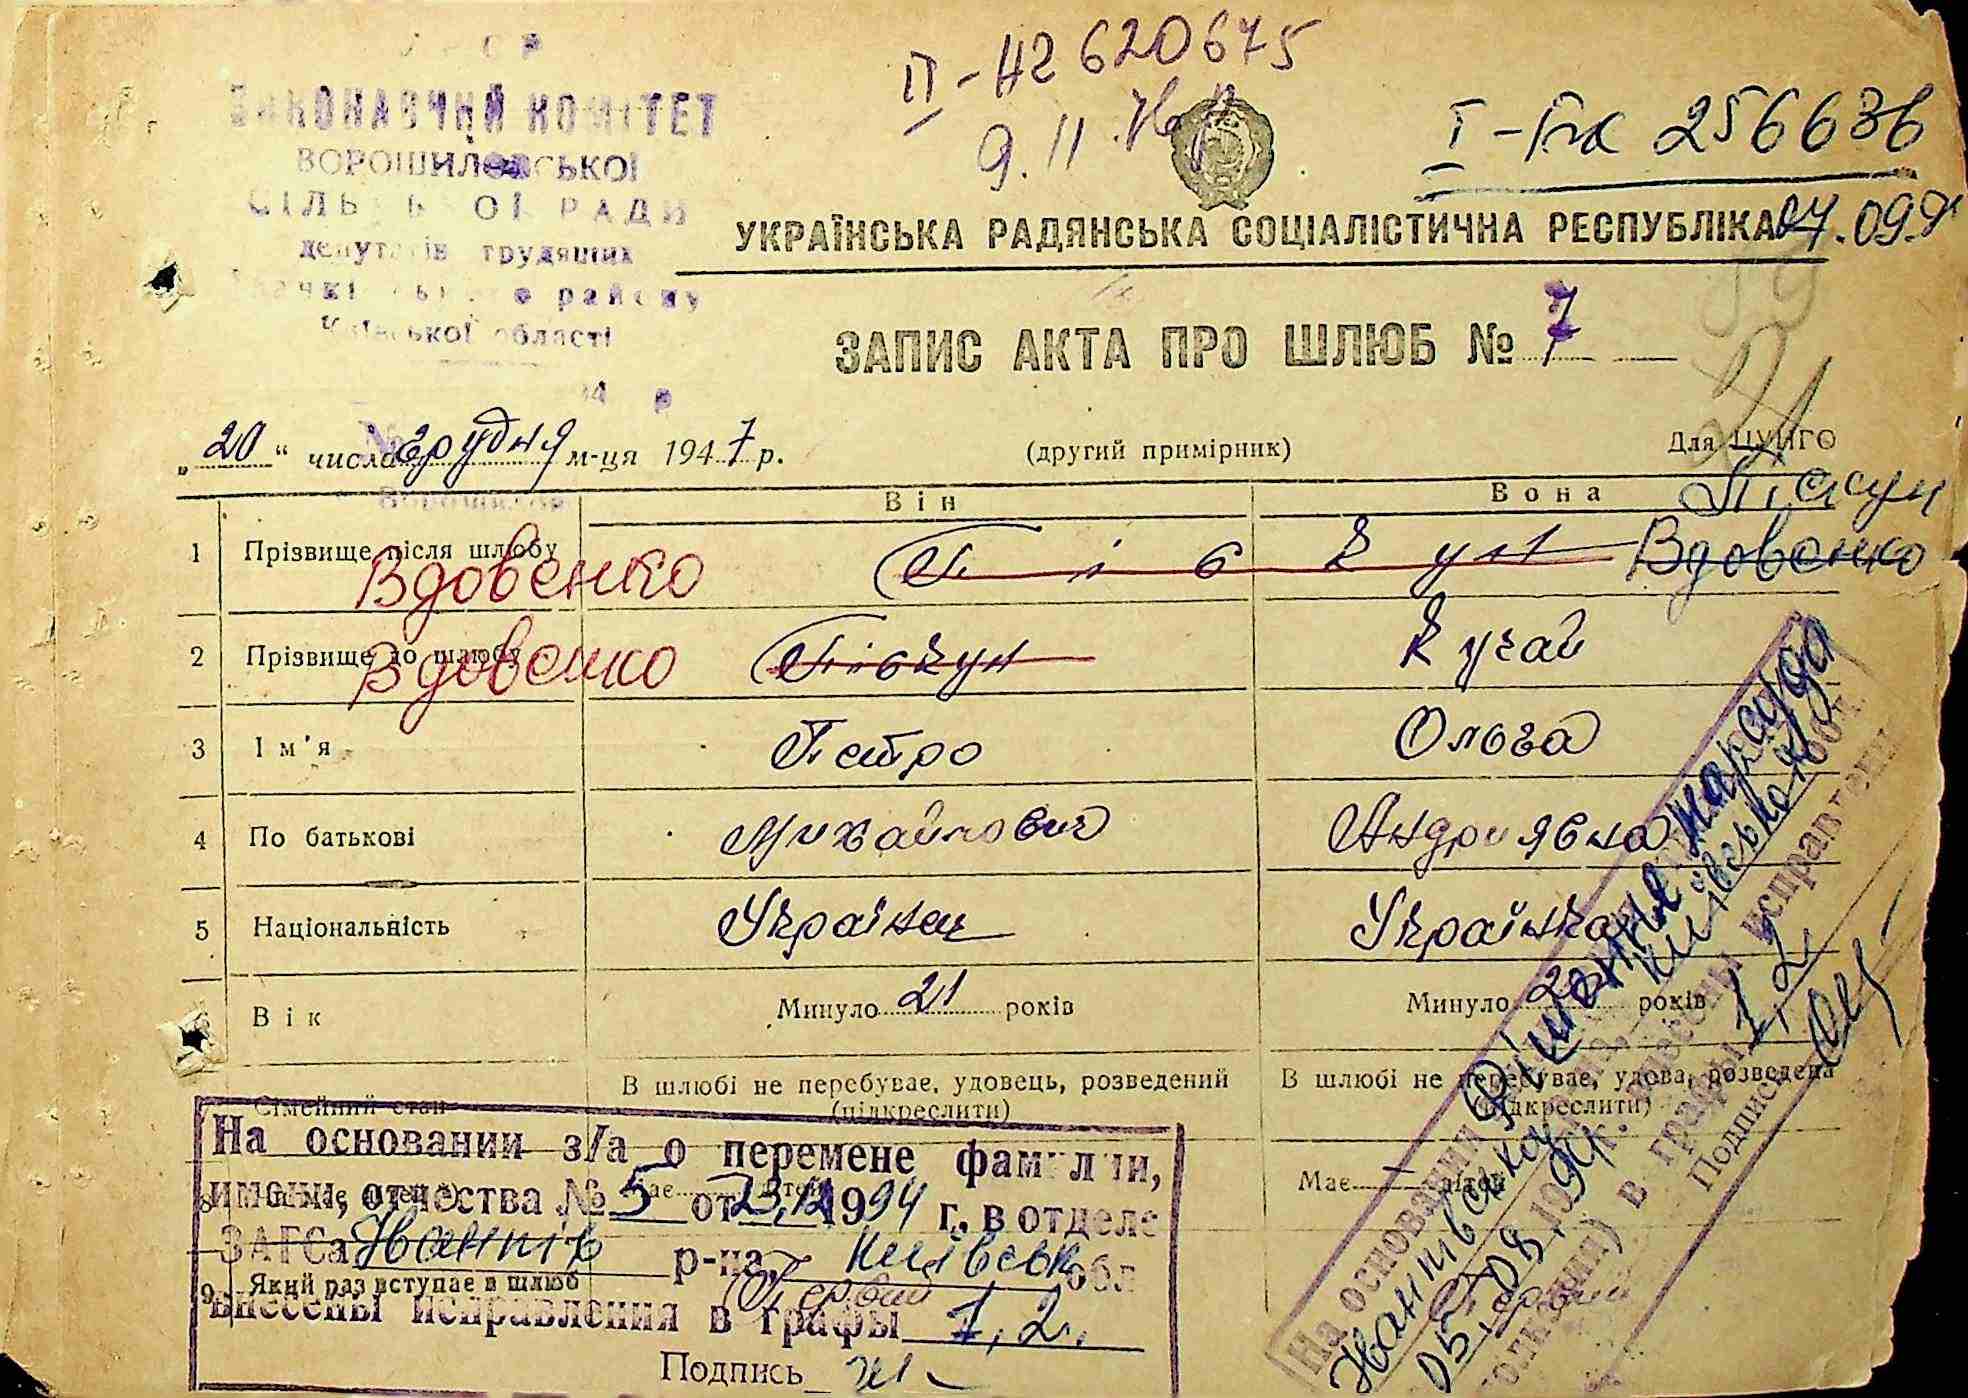 УРСР
ВИКОНАВЧИЙ КОМІТЕТ
ВОРОШИЛОВСЬКОЇ
СІЛЬСЬКОЇ РАДИ
депутатів трудящих
району
Київської області
194 р
№
II - НГ 620675
9.11.
I - БК 256636
УКРАЇНСЬКА РАДЯНСЬКА СОЦІАЛІСТИЧНА РЕСПУБЛІКА
07.09.9
ЗАПИС АКТА ПРО ШЛЮБ № 7
„20“ числа грудня м-ця 1947 р.
(другий примірник)
Для ЦУНГО
Він
Вона
1 Прізвище після шлюбу Вдовенко Піскун Вдовенко
Піскун
2 Прізвище до шлюбу Вдовенко Піскун Кучай
3 Ім'я Петро Ольга
4 По батькові Михайлович Андріївна
5 Національність Українец Українка
6 Вік Минуло 21 років Минуло років
Сімейний стан В шлюбі не перебуває, удовець, розведений (підкреслити) В шлюбі не перебуває, удова, розведена (підкреслити)
8 Має дітей Має — дітей
9 Який раз вступає в шлюб Первий Первий
На основании з/а о перемене фамилии,
имени, отчества № 5 от 23.12 1994 г. в отделе
ЗАГСа Іванків р-на, Київськ обл
внесены исправления в графы 1, 2.
Подпись
На основании Рішення нарсуда
Іванківського Київської обл.
05.08.199 г. внесены исправления
в графы 1, 2
Подпись